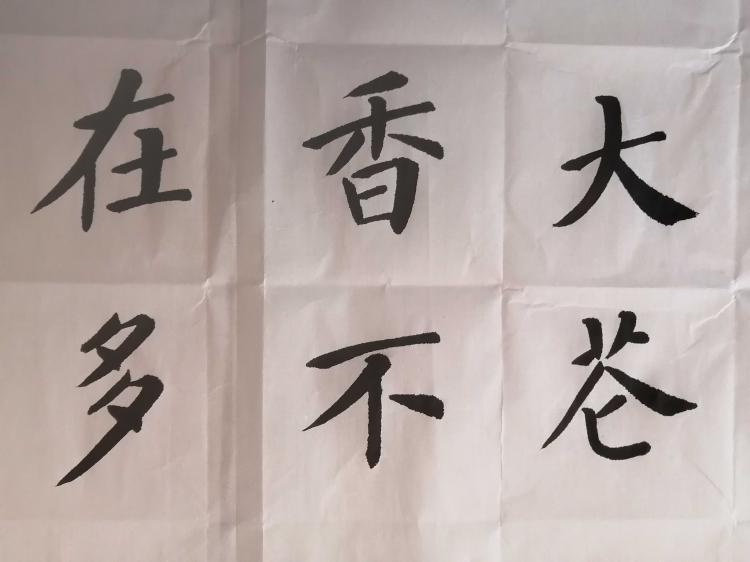 大芲
香不
在多